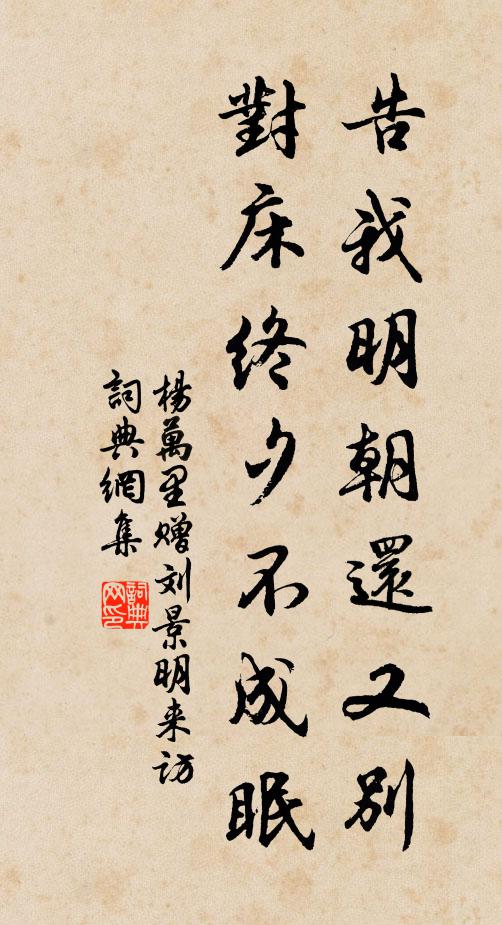 告我明朝還又別
對床終夕不成眠
楊萬里贈刘景明来访
詞典網集
詞典网印